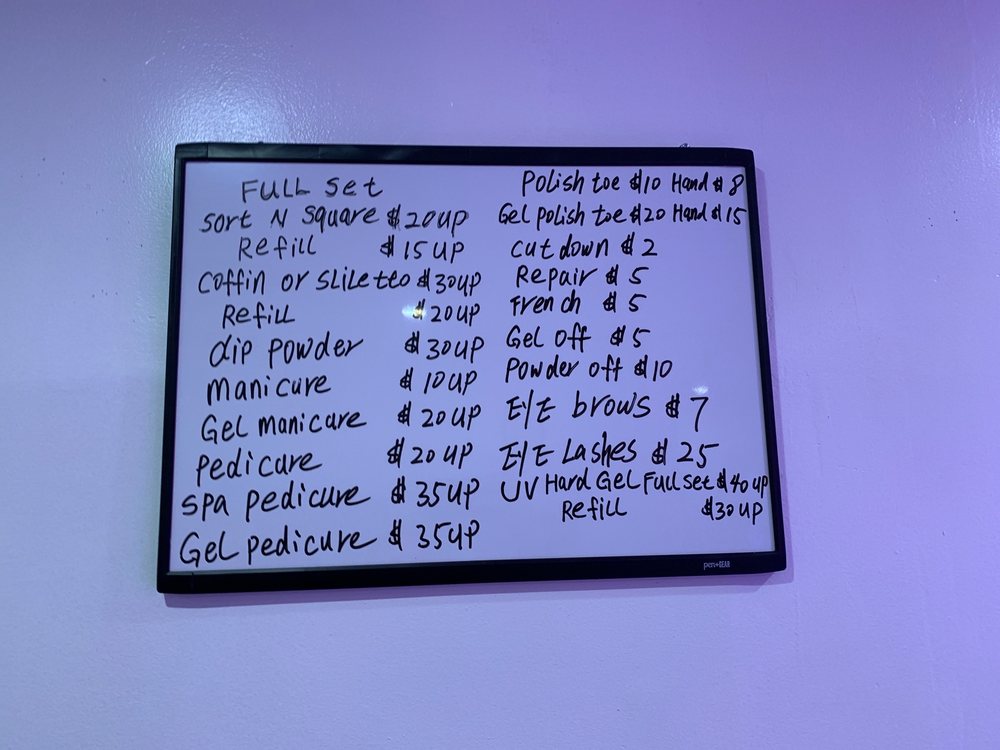 FULL Set
Sort N Square $20up
Refill $15up
Coffin or SLiLetto $30up
Refill $20up
dip powder $30up
manicure $10up
Gel manicure $20up
pedicure $20up
Spa pedicure $35up
Gel pedicure $35up
Polish toe $10 Hand $8
Gel polish toe $20 Hand $15
Cut down $2
Repair $5
French $5
Gel off $5
Powder off $10
EYE brows $7
EYE Lashes $25
UV Hard Gel Full set $40up
Refill $30up
pen+GEAR